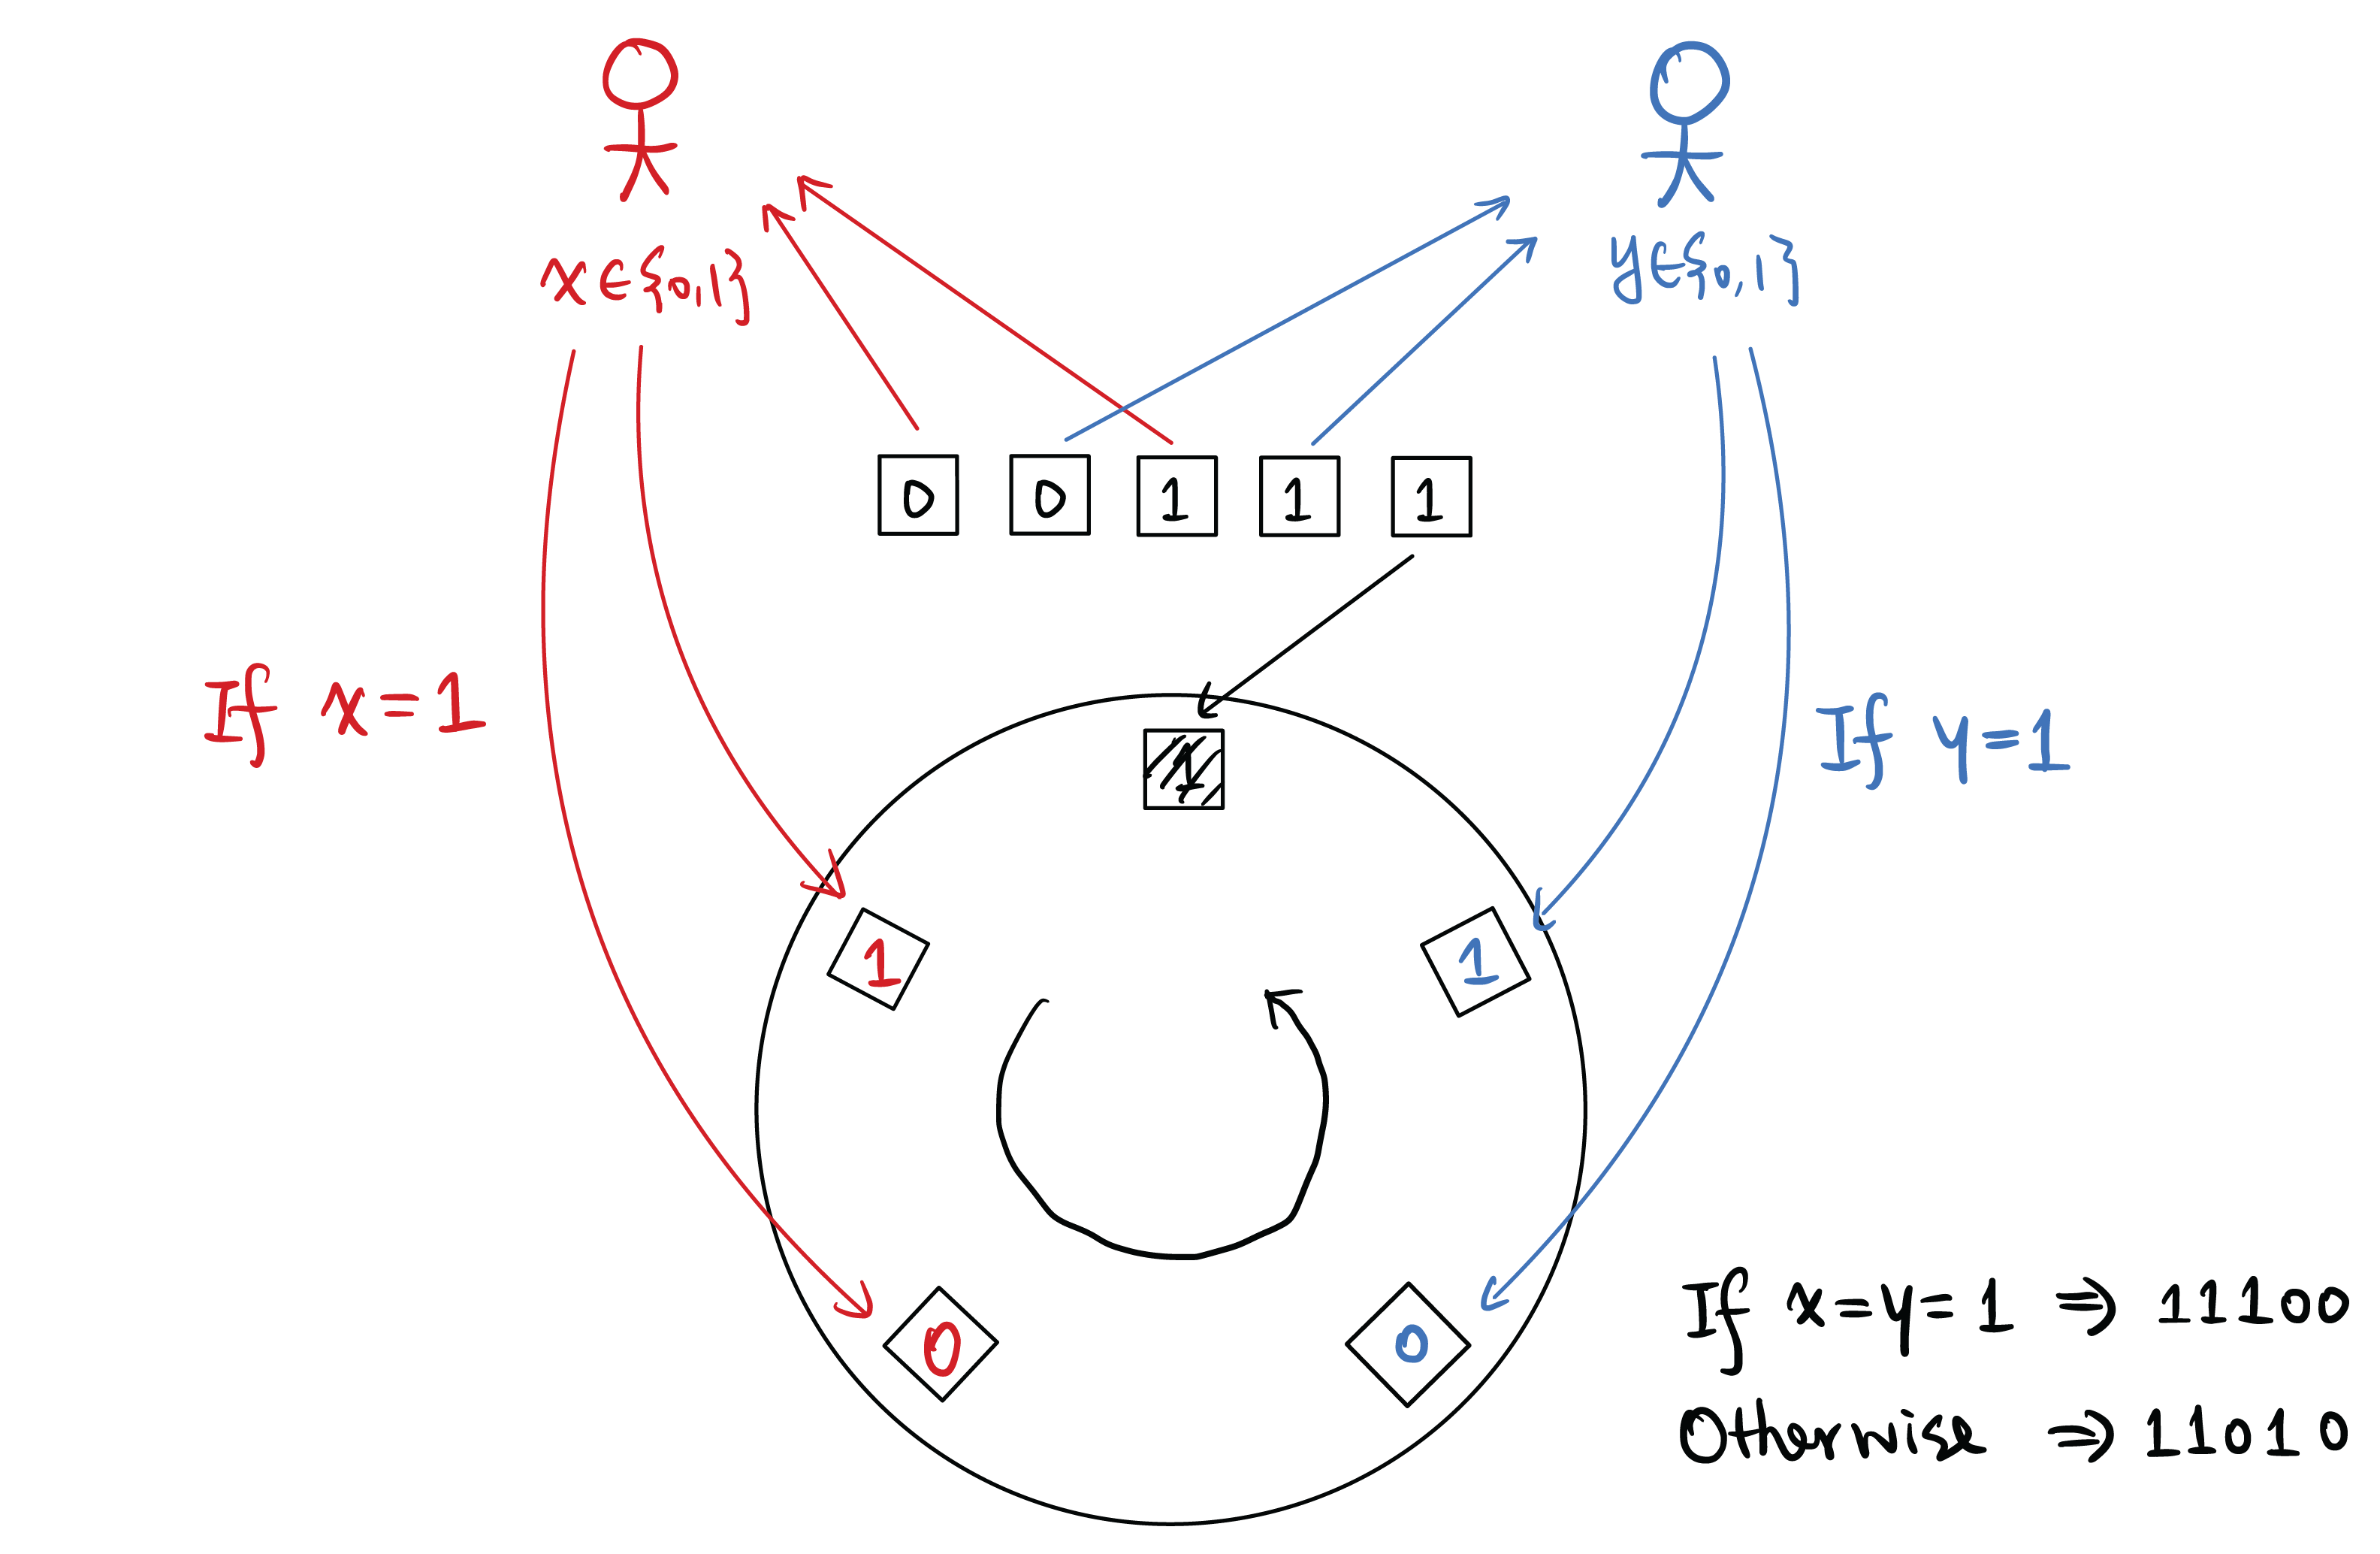 x∈{0,1}
y∈{0,1}
0 0 1 1 1
If x=1
If y=1
1
1 1
0 0
If x=y=1 ⇒ 11100
Otherwise ⇒ 11010